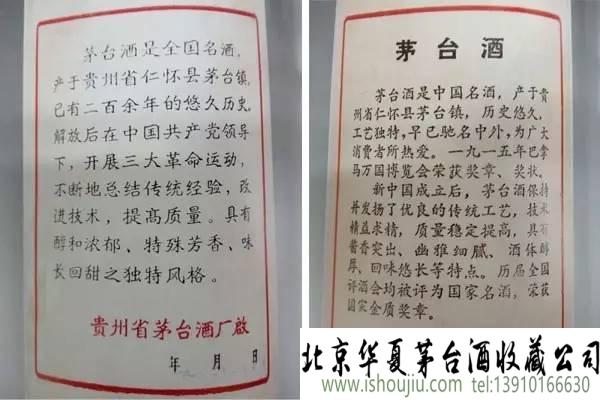 茅台酒是全国名酒，
产于贵州省仁怀县茅台镇，
已有二百余年的悠久历史，
解放后在中国共产党领导
下，开展三大革命运动，
不断地总结传统经验，改
进技术，提高质量。具有
醇和浓郁、特殊芳香、味
长回甜之独特风格。
贵州省茅台酒厂啟
年 月 日
茅台酒
茅台酒是中国名酒，产于贵
州省仁怀县茅台镇，历史悠久，
工艺独特，早已驰名中外，为广大
消费者所热爱。一九一五年巴拿
马万国博览会荣获奖章、奖状。
新中国成立后，茅台酒保持
并发扬了优良的传统工艺，技术
精益求精，质量稳定提高，具有
酱香突出、幽雅细腻、酒体醇
厚、回味悠长等特点。历届全国
评酒会均被评为国家名酒，荣获
国家金质奖章。
北京华夏茅台酒收藏公司
www.ishoujiu.com tel:13910166630